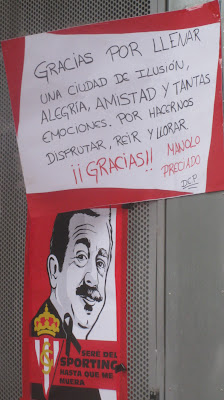 GRACIAS POR LLENAR
UNA CIUDAD DE ILUSIÓN,
ALEGRÍA, AMISTAD Y TANTAS
EMOCIONES. POR HACERNOS
DISFRUTAR, REIR Y LLORAR.
¡¡GRACIAS!! MANOLO
PRECIADO
SERÉ DEL
SPORTING
HASTA QUE ME
MUERA